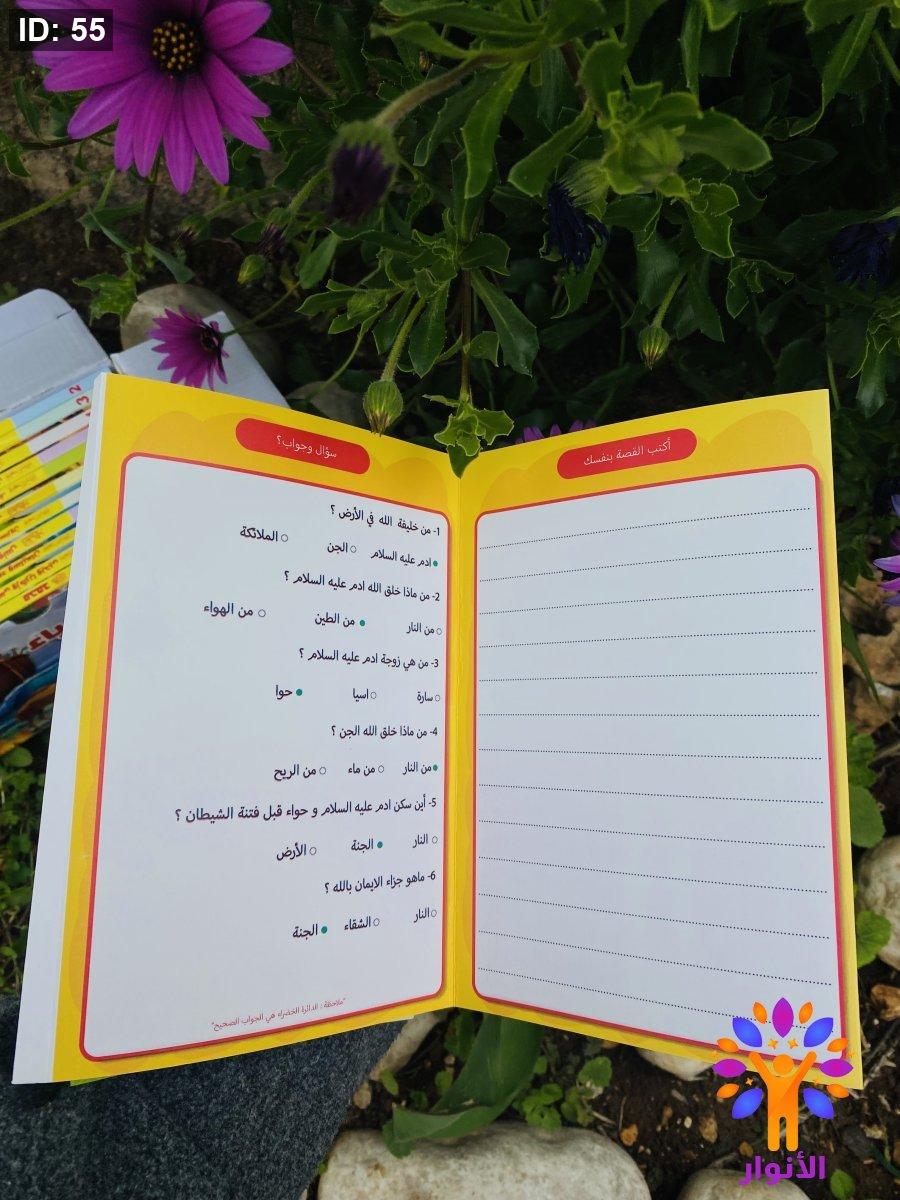 ID: 55
أكتب القصة بنفسك
سؤال وجواب؟
1- من خليفة الله في الأرض ؟
ادم عليه السلام الجن الملائكة
2- من ماذا خلق الله ادم عليه السلام ؟
من النار من الطين من الهواء
3- من هي زوجة ادم عليه السلام ؟
سارة اسيا حوا
4- من ماذا خلق الله الجن ؟
من النار من ماء من الريح
5- أين سكن ادم عليه السلام و حواء قبل فتنة الشيطان ؟
النار الجنة الأرض
6- ماهو جزاء الايمان بالله ؟
النار الشقاء الجنة
"ملاحظة : الدائرة الخضراء هي الجواب الصحيح"
الأنوار